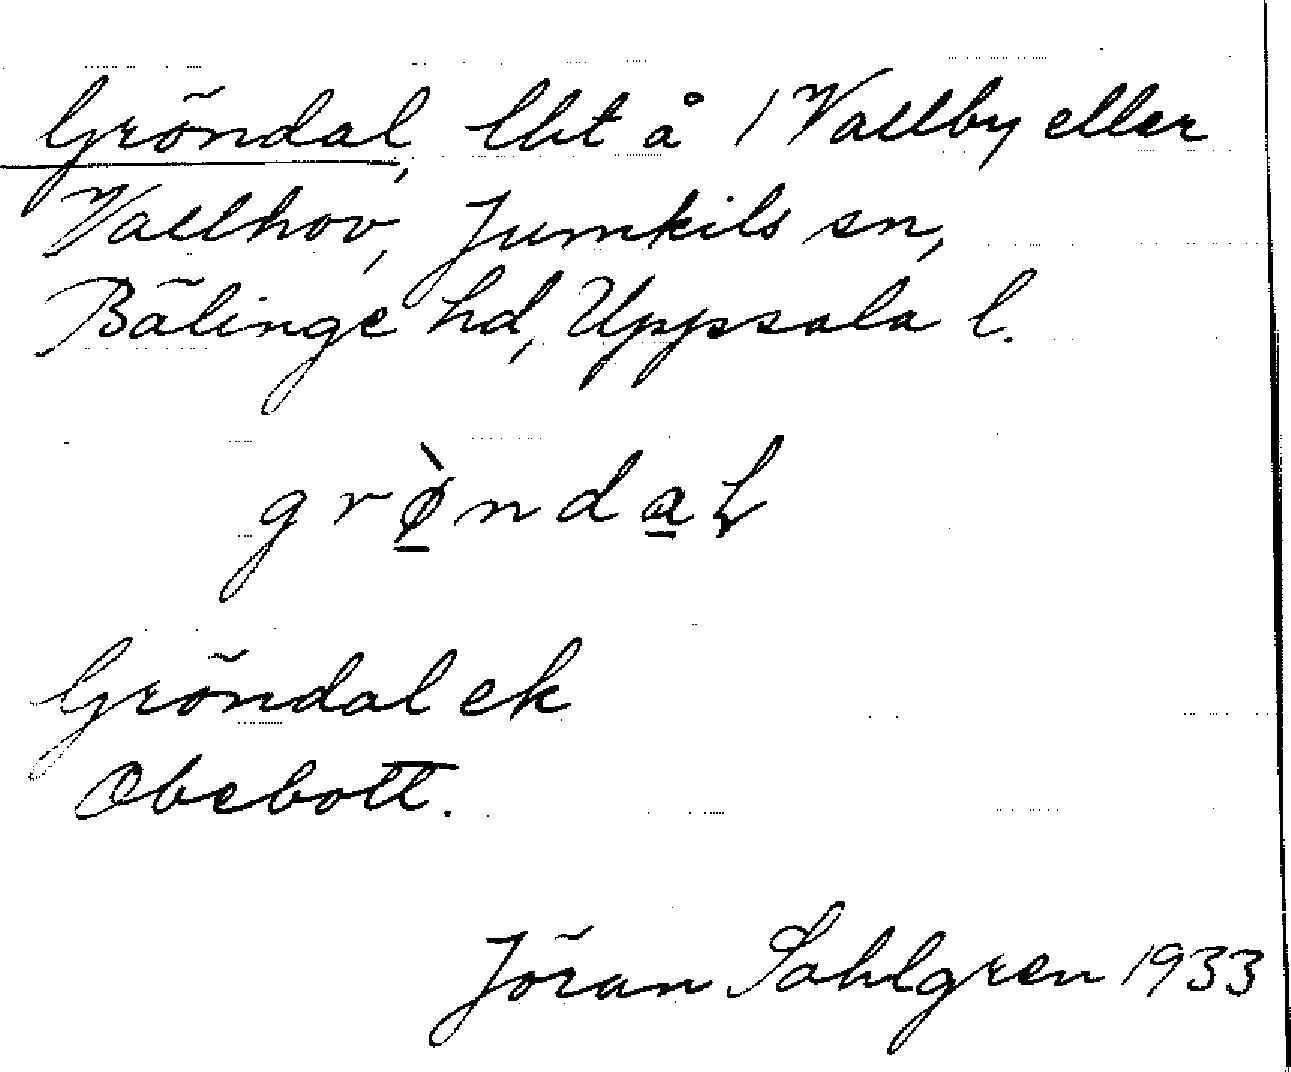 Gröndal, lht å 1 Vallby eller
Vallhov, Jumkils sn,
Bälinge hd, Uppsala l.
grø̀ndaɫ
Gröndal ek
Obebott.
Jöran Sahlgren 1933